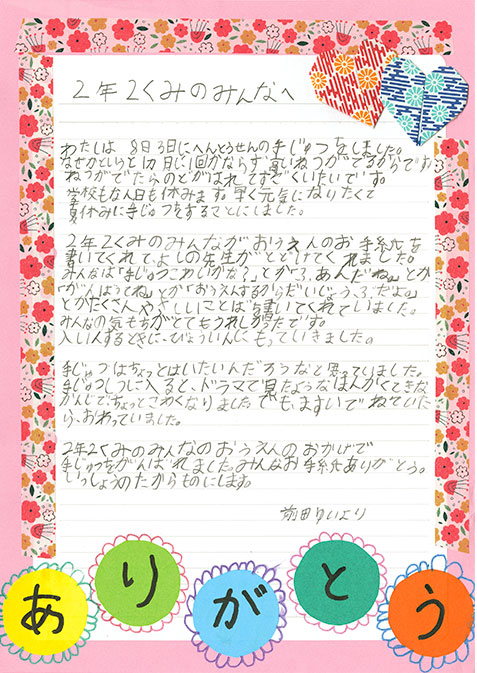 2年2くみのみんなへ
わたしは8日3日にへんとうせんの手じゅつをしました。
なぜかというと1か月に1回かならず高いねつがでるからです。
ねつがでたらのどがはれてすごくいたいです。
学校もな人日も休みます。早く元気になりたくて
夏休みに手じゅつをすることにしました。
2年2くみのみんながおうえんのお手紙を
書いてくれて、よしの先生がとどけてくれました。
みんなは「手じゅつこわいかな?」とか「ふあんだね。」とか
「がんばってね。」とか「おうえんするからだいじょうぶだよ。」
とかたくさんやさしいことばを書いてくれていました。
みんなの気もちがとてもうれしかったです。
入いんするときに、びょういんにもっていきました。
手じゅつはちょっとはいたいんだろうなと思っていました。
手じゅつしつに入ると、ドラマで見たようなほんかくてきな
かんじで、ちょっとこわくなりました。でも、ますいでねていた
ら、おわっていました。
2年2くみのみんなのおうえんのおかげで
手じゅつをがんばれました。みんなお手紙ありがとう。
いっしょうのたからものにします。
前田ゆいより
ありがとう